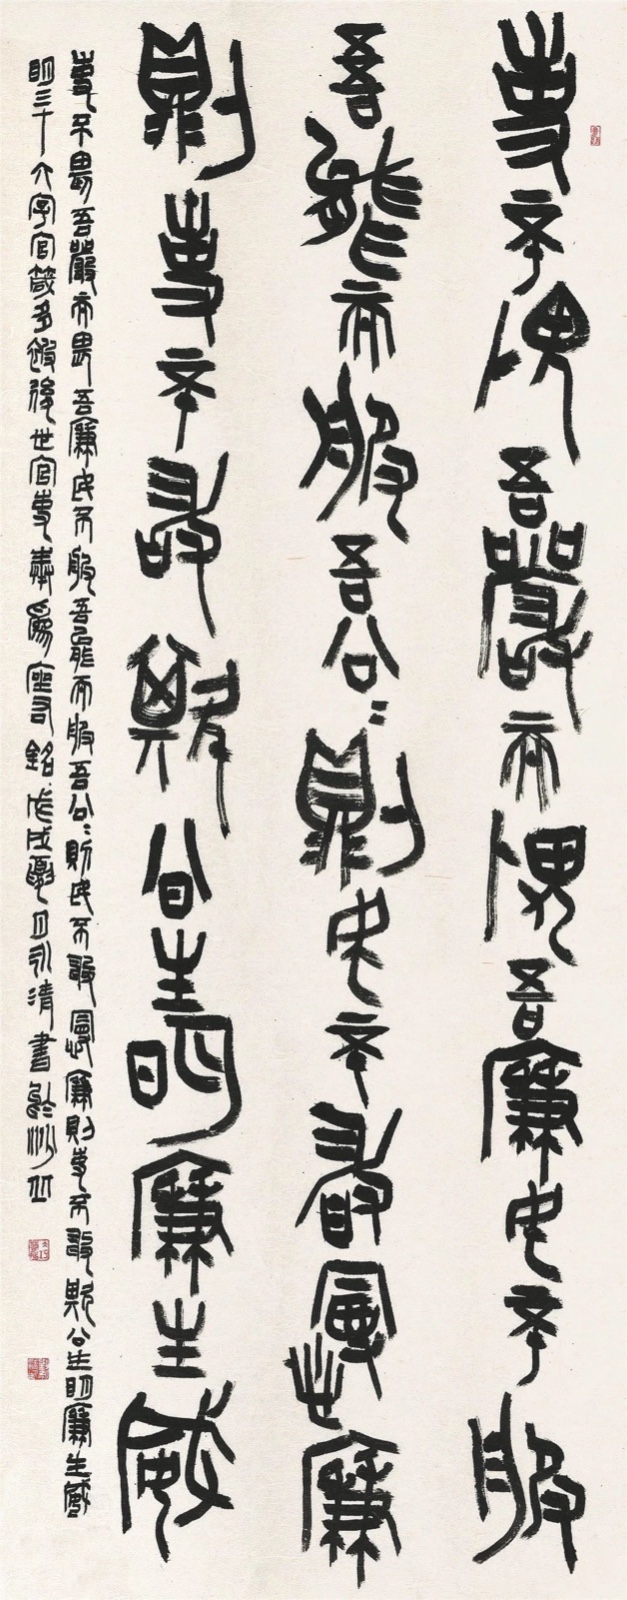 吏不畏吾嚴而畏吾廉民不服
吾能而服吾公〻則民不敢慢廉
則吏不敢欺公生明廉生威
吏不畏吾嚴而畏吾廉民不服吾能而服吾公〻則民不敢慢廉則吏不敢欺公生明廉生威
明三十六字官箴多被後世官吏奉爲座右銘戊戌夏月永清書於